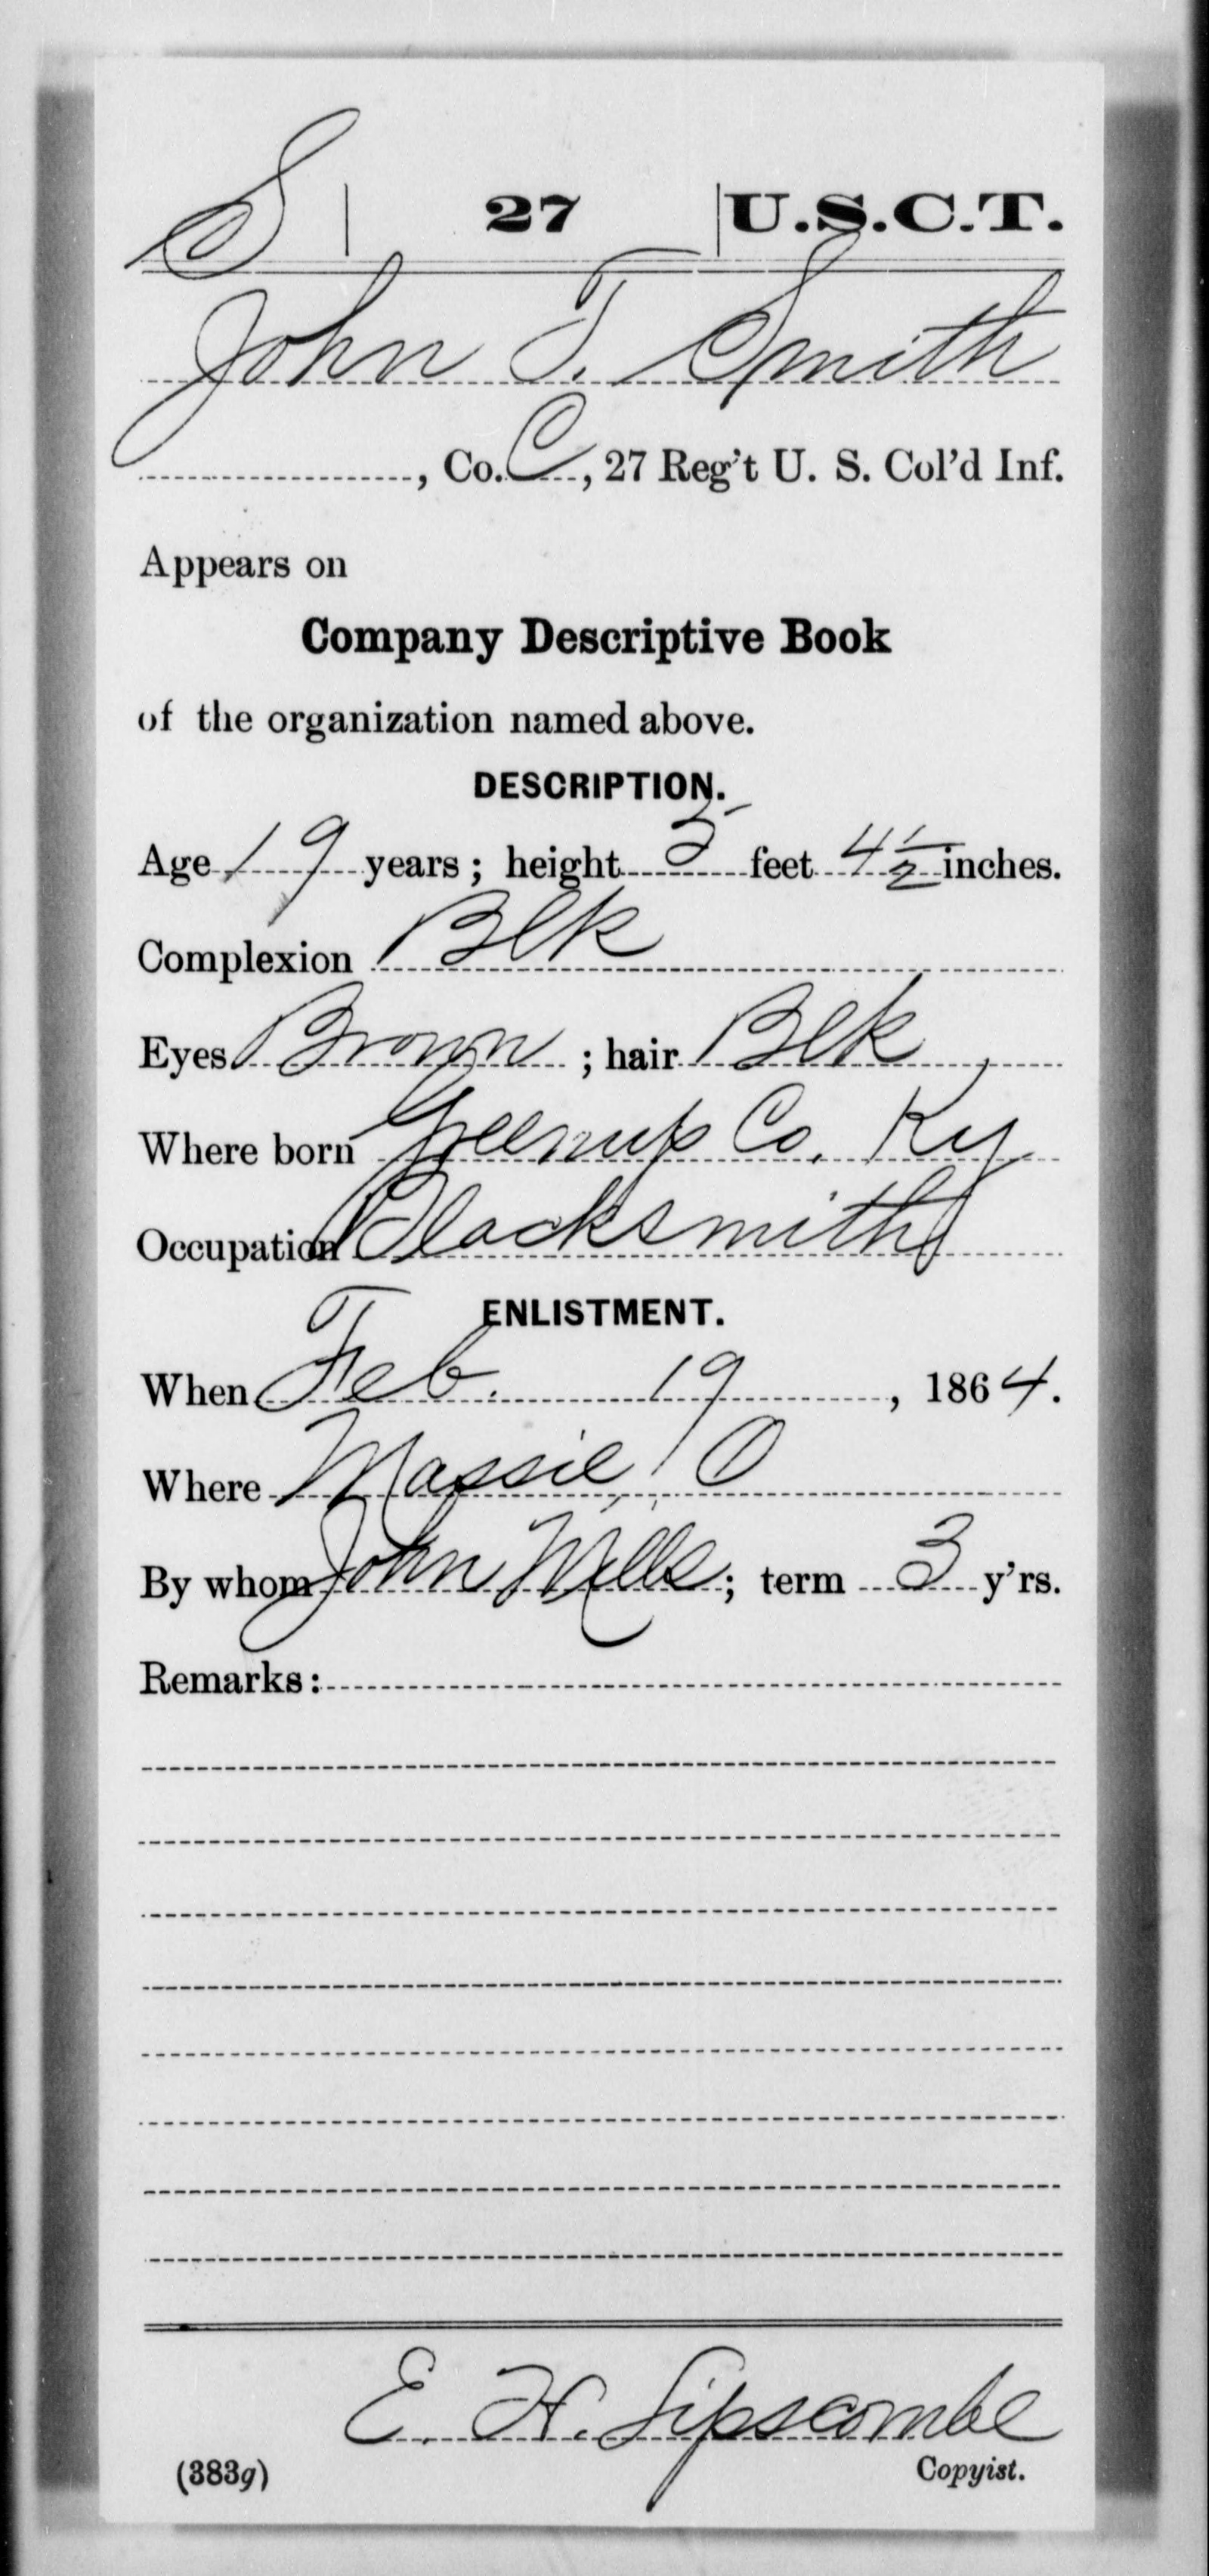 S | 27 | U.S.C.T.
John T. Smith
, Co. C, 27 Reg't U. S. Col'd Inf.
Appears on
Company Descriptive Book
of the organization named above.
DESCRIPTION.
Age 19 years; height 5 feet 4½ inches.
Complexion Blk
Eyes Brown; hair Blk
Where born Greenup Co. Ky
Occupation Blacksmith
ENLISTMENT.
When Feb. 19, 1864.
Where Massie, O
By whom John Mills; term 3 y'rs.
Remarks:
E. H. Lipscombe
(383g) Copyist.